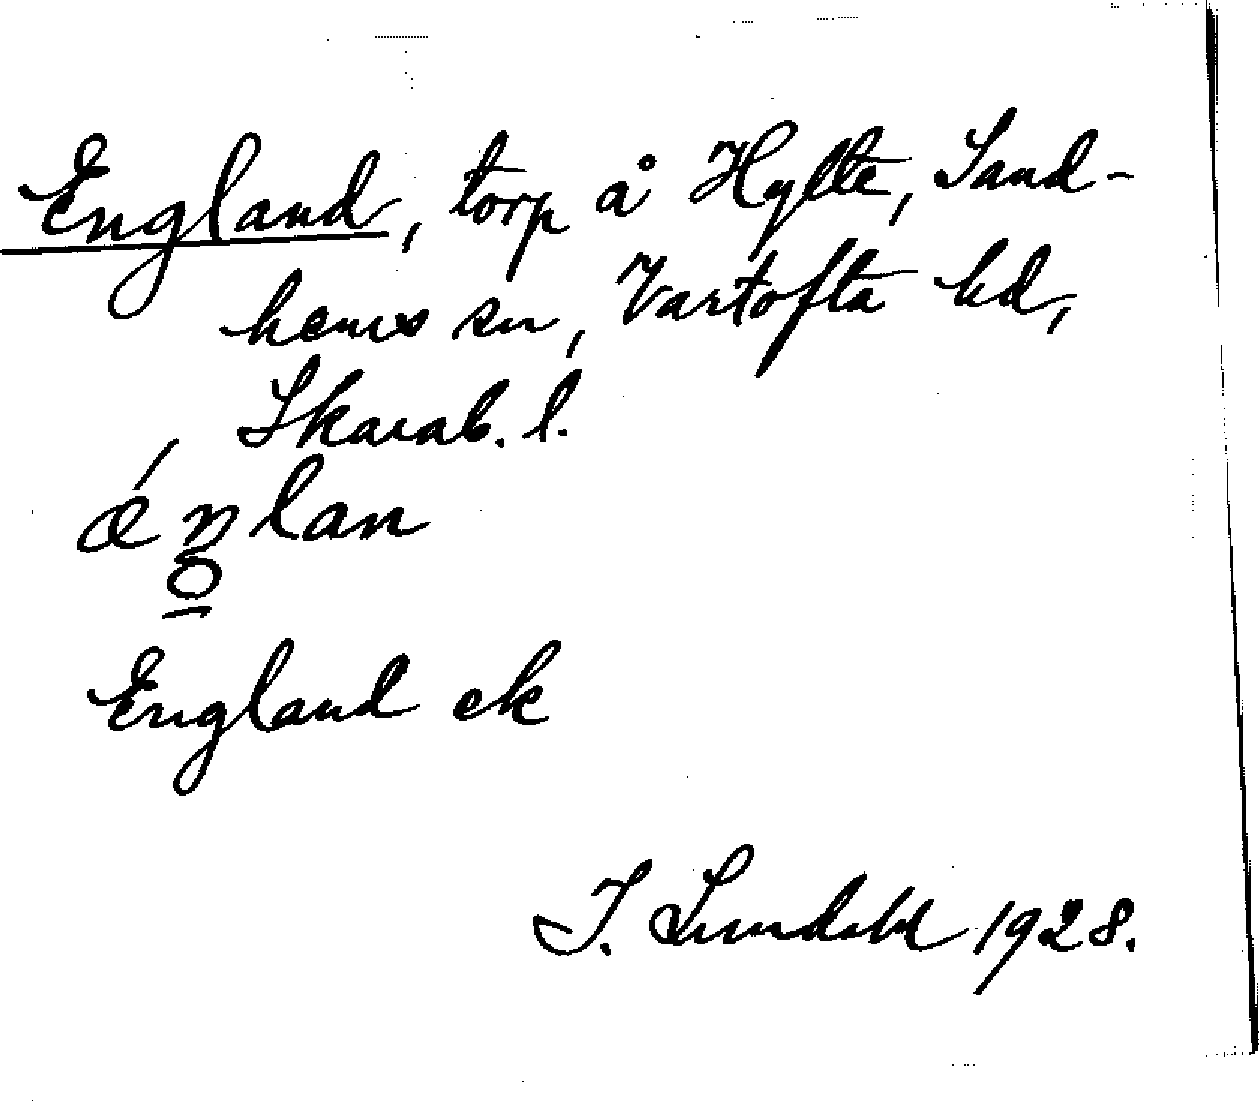 England, torp å Hylte, Sand-
hems sn, Vartofta hd,
Skarab. l.
ǽŋlan
England ek
I. Lundahl 1928.